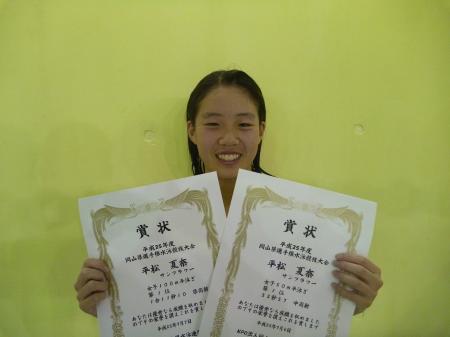 賞状
平成25年度
岡山県選手権水泳競技大会
平松 夏奈
サンフラワー
女子100m平泳ぎ
第1位
あなたは優秀なる成績を収めましたのでその栄誉を讃えこれを賞します
平成25年7月7日
賞状
平成25年度
岡山県選手権水泳競技大会
平松 夏奈
サンフラワー
女子50m平泳ぎ
第1位
あなたは優秀なる成績を収めましたのでその栄誉を讃えこれを賞します
平成25年7月6日